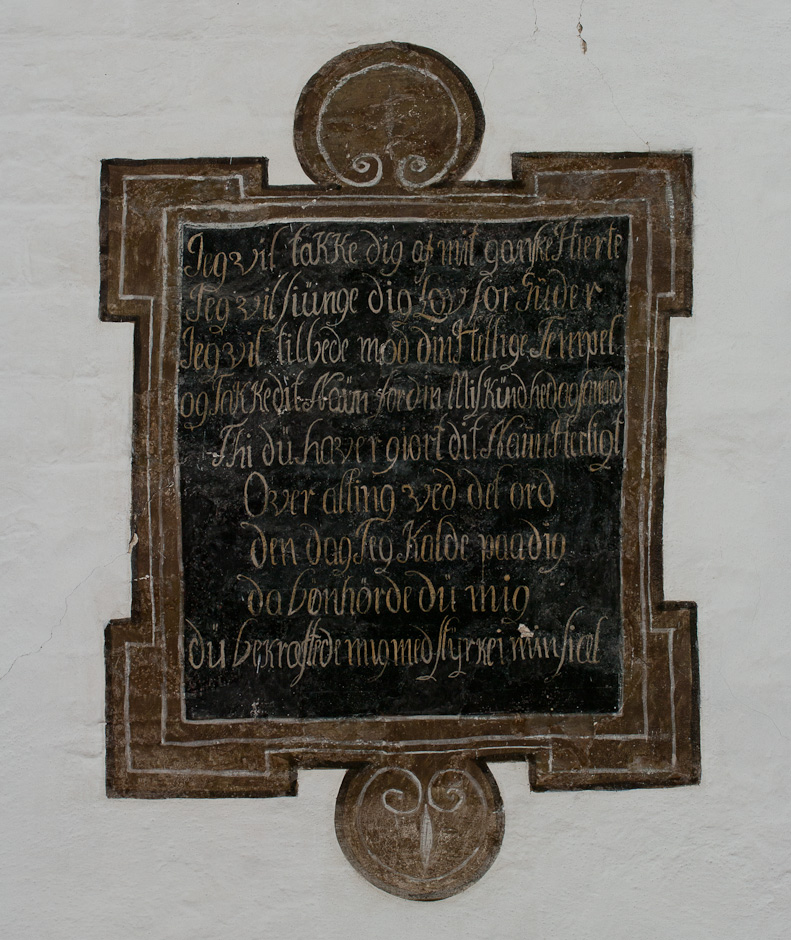 Jeg vil takke dig af mit ganske Hierte
Jeg vil siünge dig Lov for Güder
Jeg vil tilbede mod din Hellige Tempel
og takke dit Naün for din Miskündhed og
Thi dü haver giort dit Naün Herligt
Over alting ved det ord
den dag Jeg Kalde paa dig
da bønhörde dü mig
dü bekræftede mig med styrke i min siæl